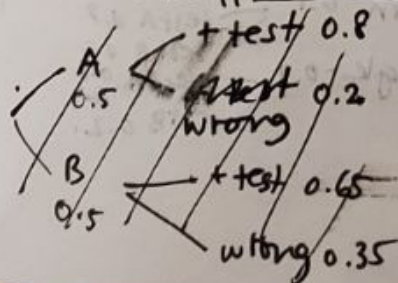 + test 0.8
A
0.5
wrong 0.2
B
0.5
+ test 0.65
wrong 0.35